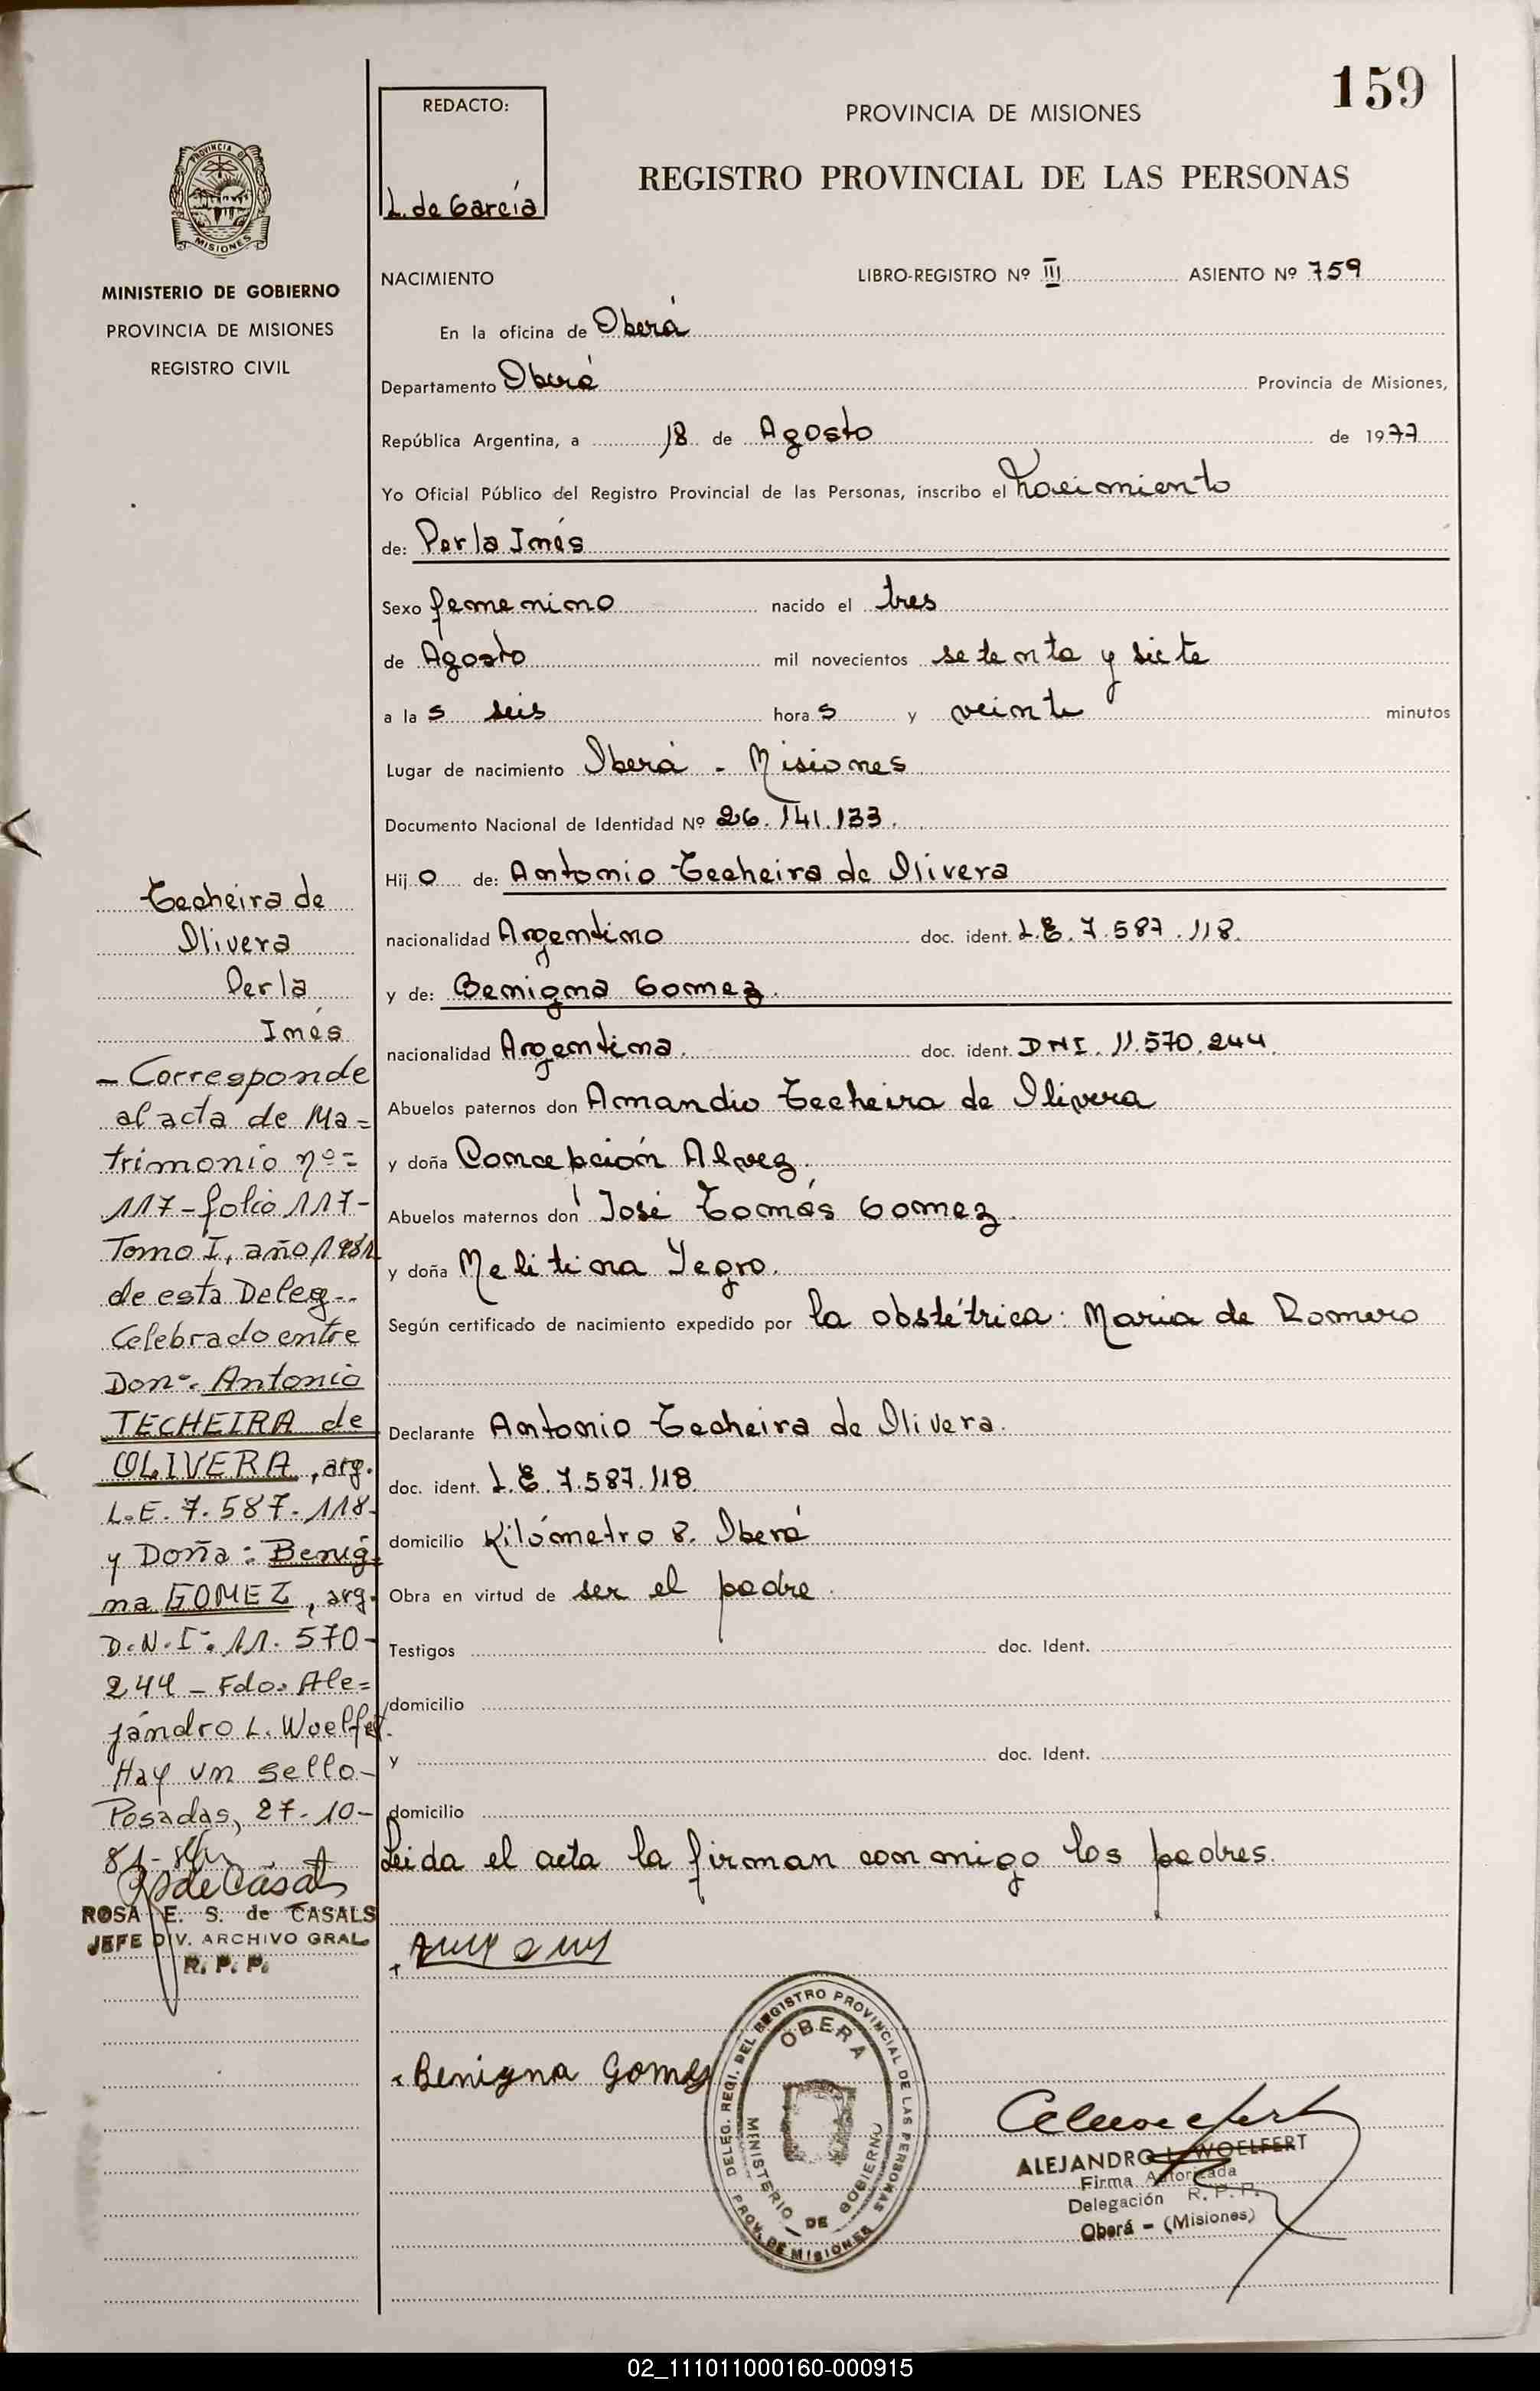 159
REDACTO:
L. de García
PROVINCIA DE MISIONES
REGISTRO PROVINCIAL DE LAS PERSONAS
PROVINCIA DE
MISIONES
MINISTERIO DE GOBIERNO
PROVINCIA DE MISIONES
REGISTRO CIVIL
NACIMIENTO LIBRO-REGISTRO Nº III ASIENTO Nº 759
En la oficina de Oberá
Departamento Oberá Provincia de Misiones,
República Argentina, a 18 de Agosto de 1977
Yo Oficial Público del Registro Provincial de las Personas, inscribo el Nacimiento
de: Perla Inés
Sexo femenino nacido el tres
de Agosto mil novecientos setenta y siete
a las seis horas y veinte minutos
Lugar de nacimiento Oberá - Misiones
Documento Nacional de Identidad Nº 26.141.133.
Hijo de: Antonio Techeira de Olivera
nacionalidad Argentino doc. ident. L.E. 7.587.118.
y de: Benigna Gomez.
nacionalidad Argentina. doc. ident. DNI. 11.570.244.
Abuelos paternos don Amandio Techeira de Olivera
y doña Concepción Alvez.
Abuelos maternos don José Tomás Gomez.
y doña Melitina Yegro.
Según certificado de nacimiento expedido por la obstétrica: Maria de Romero
Declarante Antonio Techeira de Olivera.
doc. ident. L.E. 7.587.118
domicilio Kilómetro 8. Oberá
Obra en virtud de ser el padre.
Testigos doc. Ident.
domicilio
y doc. Ident.
domicilio
Leida el acta la firman conmigo los padres.
Benigna Gomez
DELEG. REGI. DEL REGISTRO PROVINCIAL DE LAS PERSONAS
OBERA
MINISTERIO DE GOBIERNO
PROV. DE MISIONES
ALEJANDRO L. WOELFERT
Firma Autorizada
Delegación R. P. P.
Oberá - (Misiones)
Techeira de
Olivera
Perla
Inés
- Corresponde
al acta de Ma=
trimonio nº=
117-folio 117-
Tomo I, año 1981
de esta Deleg-.
Celebrado entre
Don-. Antonio
TECHEIRA de
OLIVERA, arg.
L.E. 7.587.118-
y Doña: Benig-
na GOMEZ, arg.
D.N.I-. 11.570-
244 - Fdo. Ale=
jandro L. Woelfert.
Hay un sello-
Posadas, 27-10-
81-
RS de Casals
ROSA E. S. de CASALS
JEFE DIV. ARCHIVO GRAL
R. P. P.
02_111011000160-000915